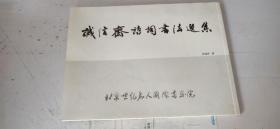 诚信斋诗词书法选集
北京世纪名人国际书画院